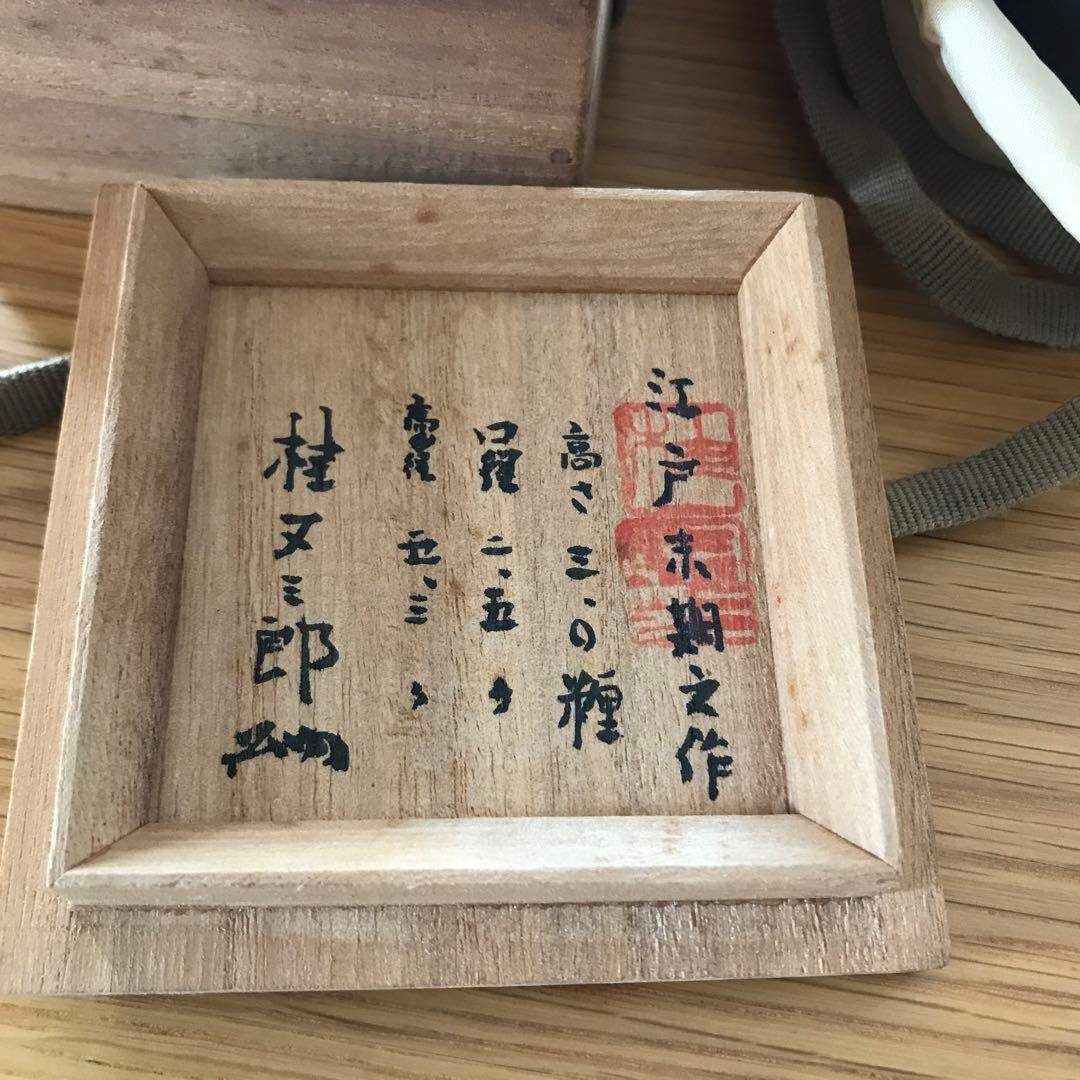 江戸末期之作
高さ 三、〇糎
口径 二、五〃
径 五、三〃
桂又三郎